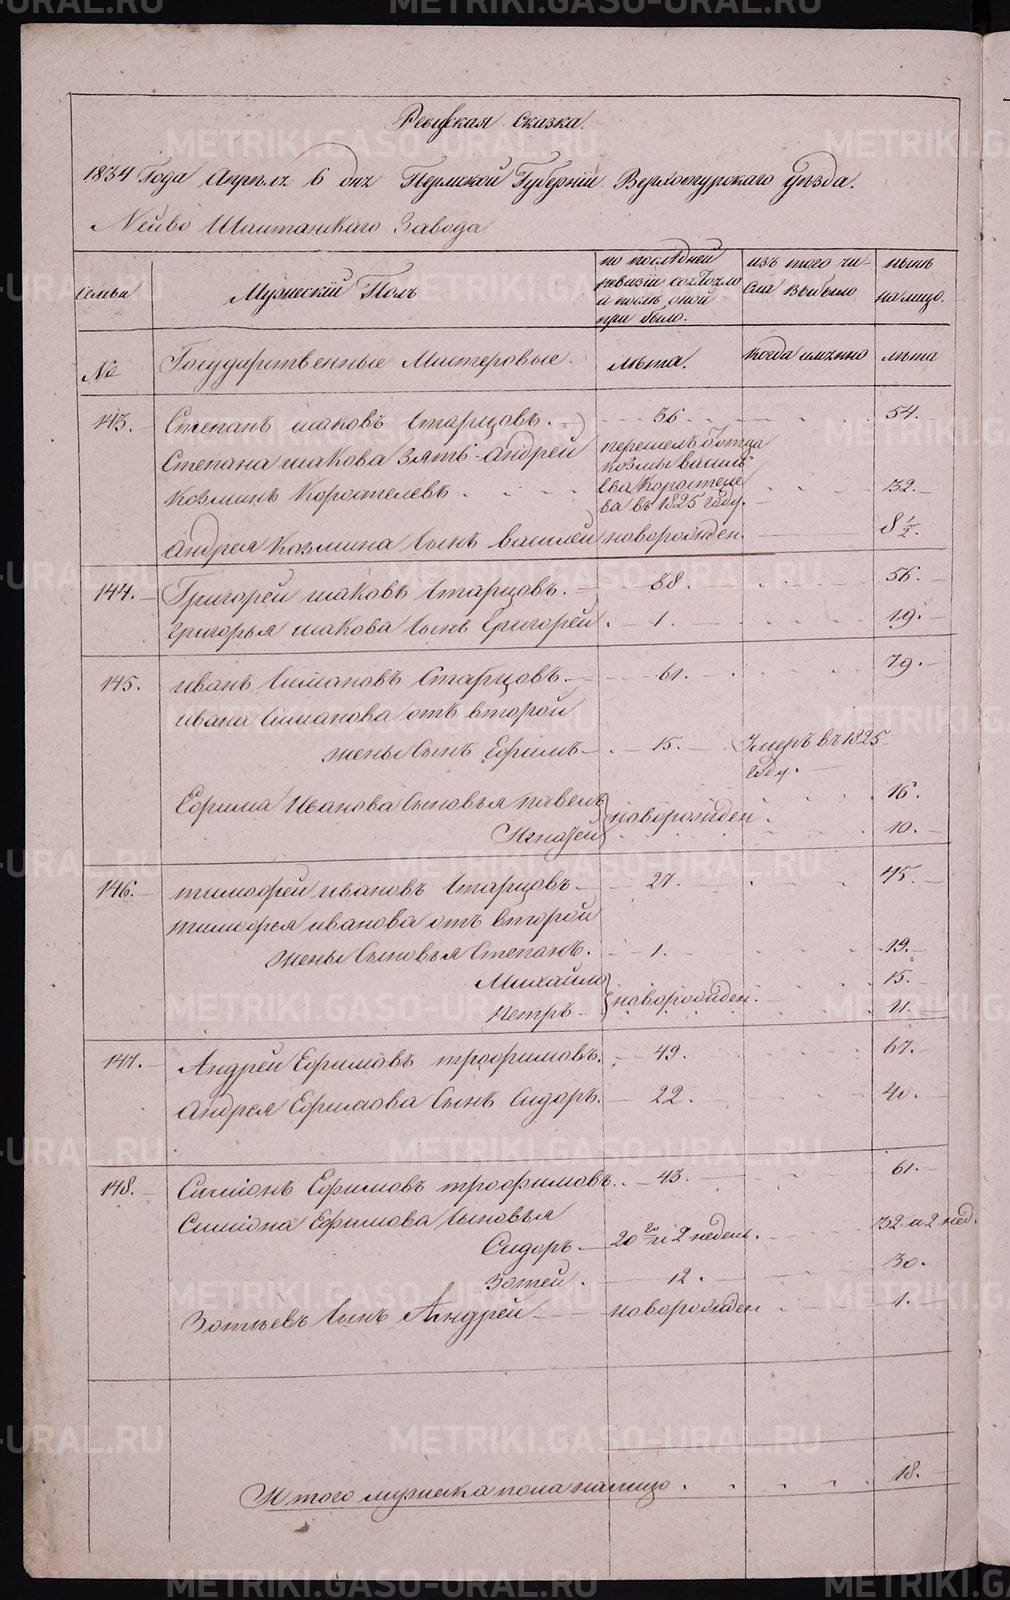 Ревижская Сказка.
1834 Года Апреля 6 дня Пермской Губернiи Верхотурскаго Уѣзда.
Нейво Шайтанскаго Завода
Семьи
Мужескiй Полъ
по последней ревизiи состояло и послѣ оной при было.
изъ того числа выбыло
нынѣ на лицо.
№
Государственные Мастеровые.
лѣта.
когда имянно
лѣта
143. Степанъ иаковъ Старцовъ. 36. 54.
Степана иакова зять андрей
Козминъ Коростелевъ. перешелъ отъ отца козмы василь ева Коростеле ва въ 1825 году. 32.
андрея козмина сынъ василей новорожден. 8 1/2.
144. Григорей иаковъ Старцовъ. 38. 56.
Григорья иакова сынъ Григорей. 1. 19.
145. иванъ Симановъ Старцовъ. 61. 79.
ивана Симанова отъ второй
жены Сынъ Ефимъ 15. Умеръ въ 1825 году.
Ефима Иванова Сыновья павелъ новорожден 16.
Игнатей 10.
146. тимофей ивановъ Старцовъ 27. 45.
тимофея иванова отъ второй
жены Сыновья Степанъ. 1. 19.
Михайло новорожден. 15.
петръ 11.
147. Андрей Ефимовъ трофимовъ. 49. 67.
Андрея Ефимова Сынъ Сидоръ. 22. 40.
148. Симiонъ Ефимовъ трофимовъ. 43. 61.
Симiона Ефимова сыновья
Сидоръ 20 го и 2 недель. 32 и 2 нед.
Зотей. 12. 30.
Зотѣевъ сынъ Андрей новорожден 1.
Итого мужеска пола налицо 18.
METRIKI.GASO-URAL.RU